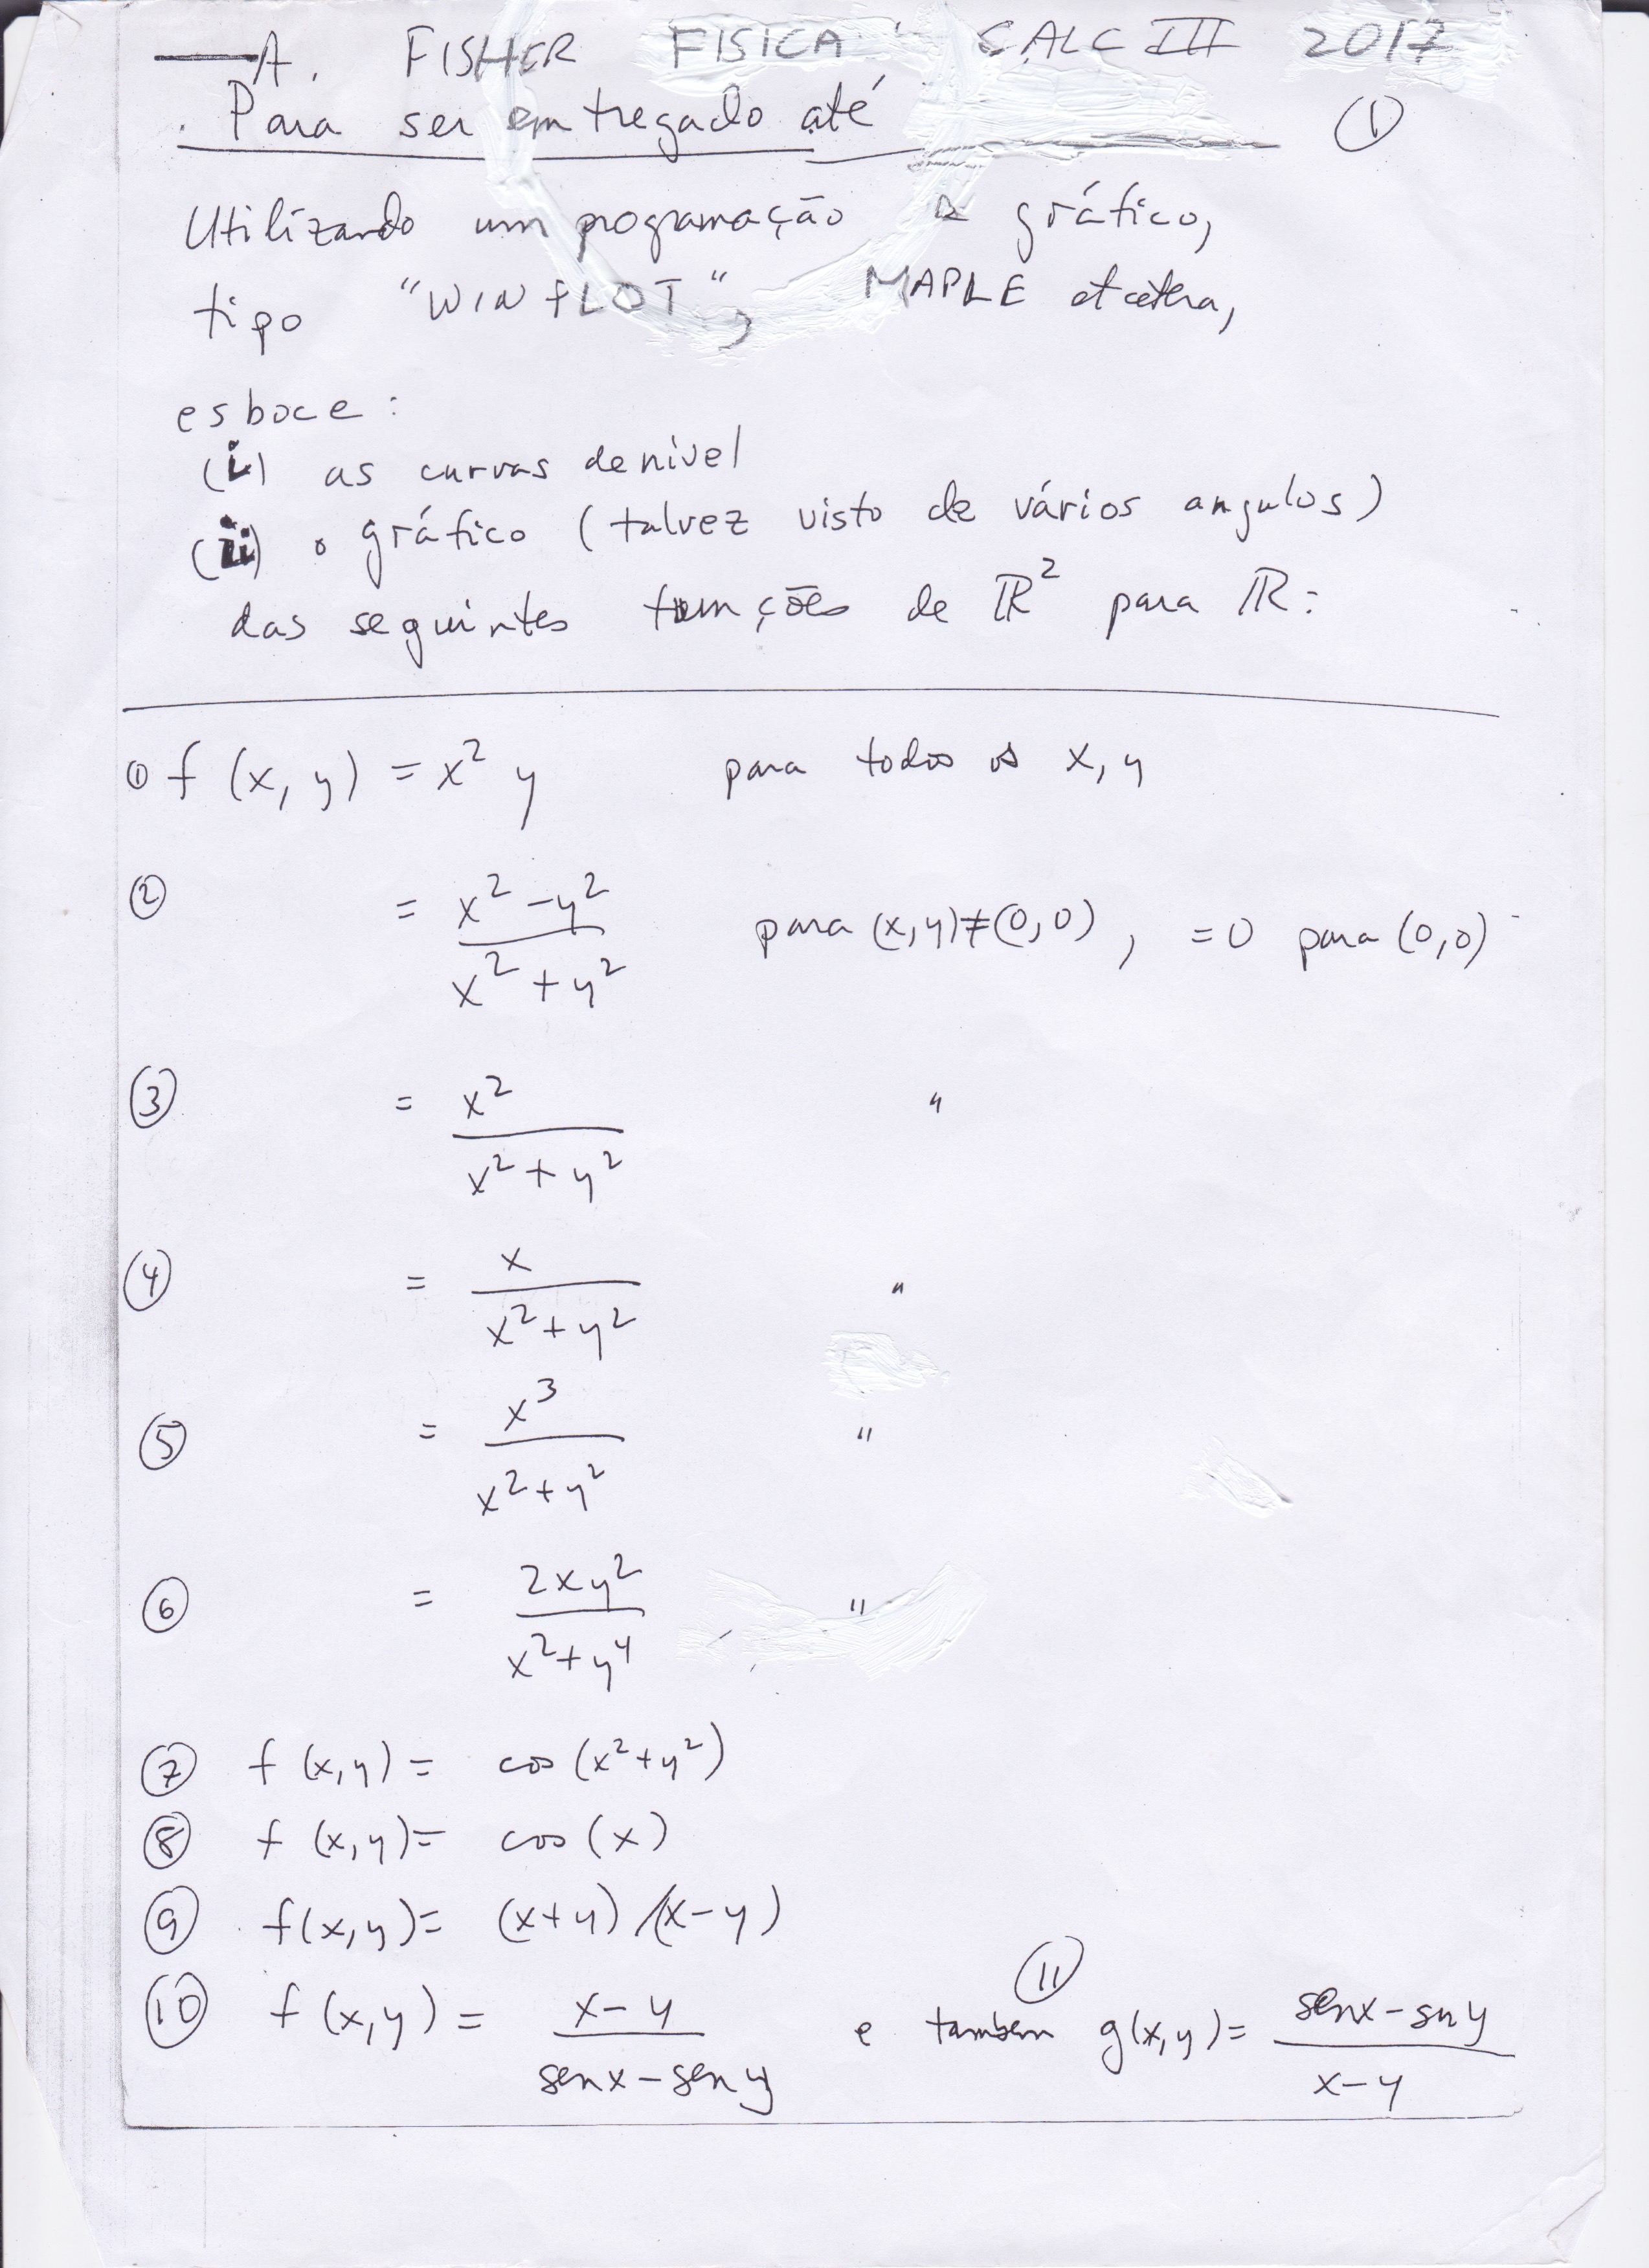 A. FISHER FISICA CALC III 2017
Para ser entregado até ①
Utilizando um programação gráfico,
tipo "WINPLOT", MAPLE etcetera,
esboce:
(i) as curvas de nivel
(ii) o gráfico (talvez visto de vários angulos)
das seguintes funções de ℝ² para ℝ:
① f(x, y) = x² y para todos os x, y
② = (x² - y²)/(x² + y²) para (x,y) ≠ (0,0), = 0 para (0,0)
③ = x²/(x² + y²) "
④ = x/(x² + y²) "
⑤ = x³/(x² + y²) "
⑥ = 2xy²/(x² + y⁴) "
⑦ f(x,y) = cos(x² + y²)
⑧ f(x,y) = cos(x)
⑨ f(x,y) = (x+y)/(x-y)
⑩ f(x,y) = (x-y)/(senx - sen y) e tambem ⑪ g(x,y) = (senx - sen y)/(x-y)